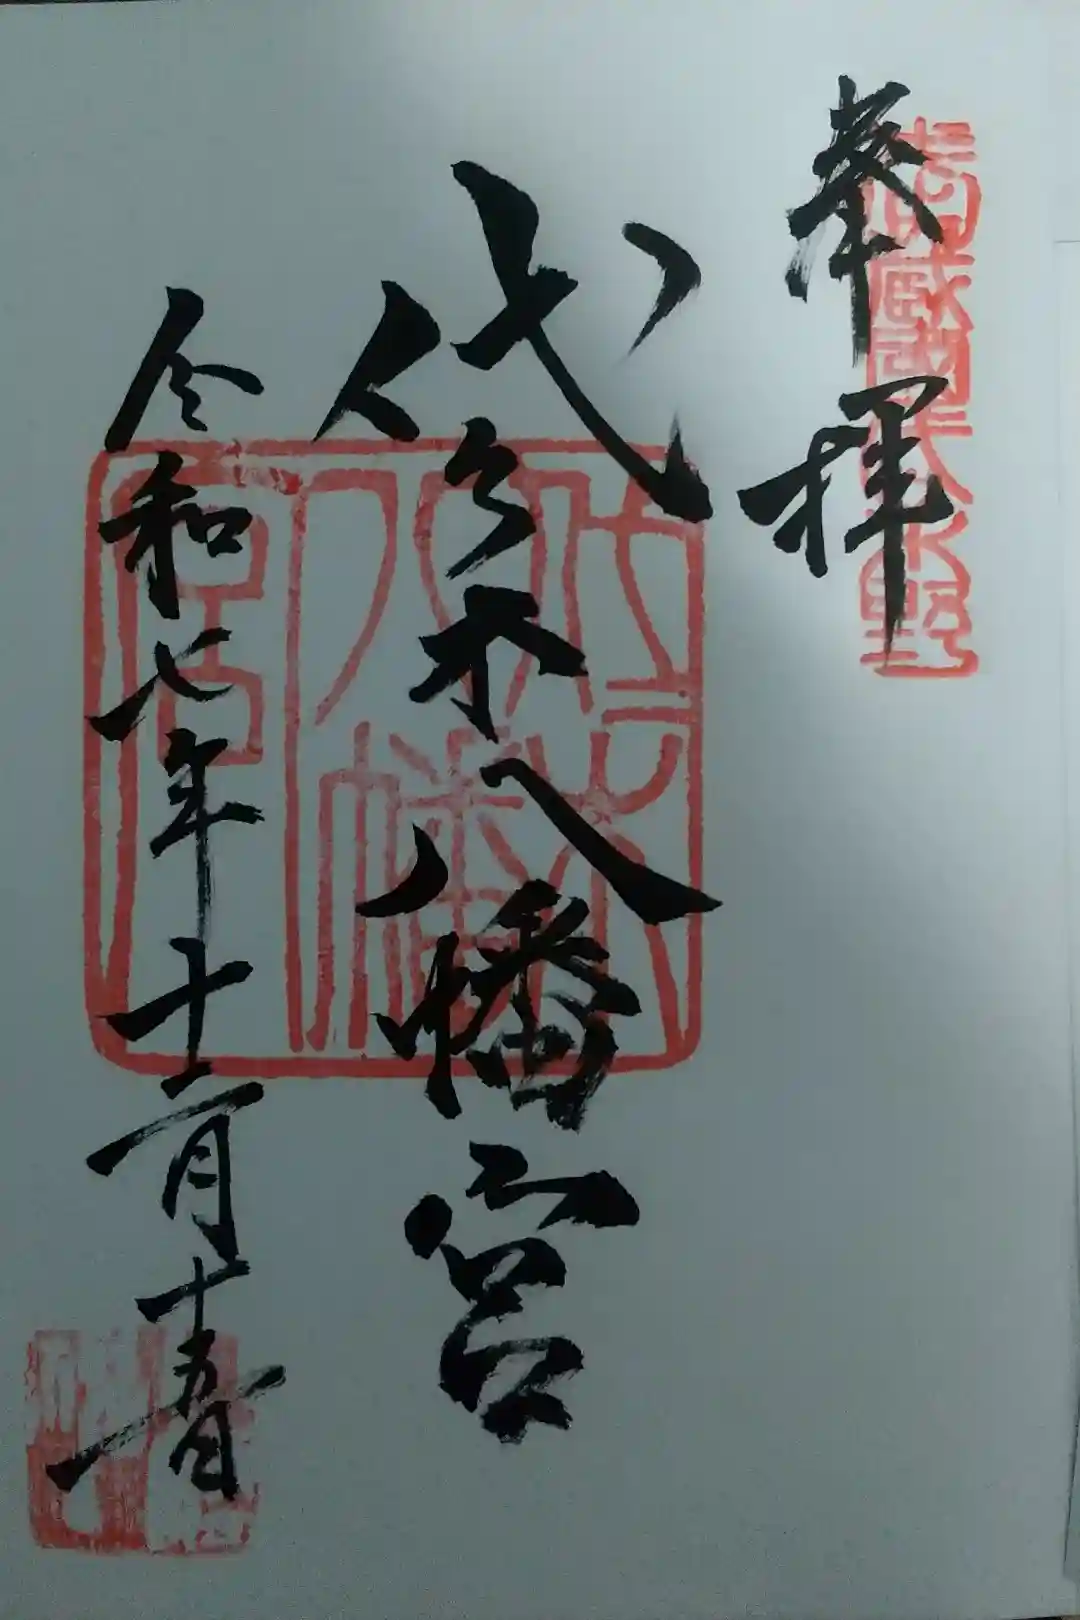 奉拝
武蔵國代々木野
代々木八幡宮
代々木八幡宮
令和七年十二月十五日